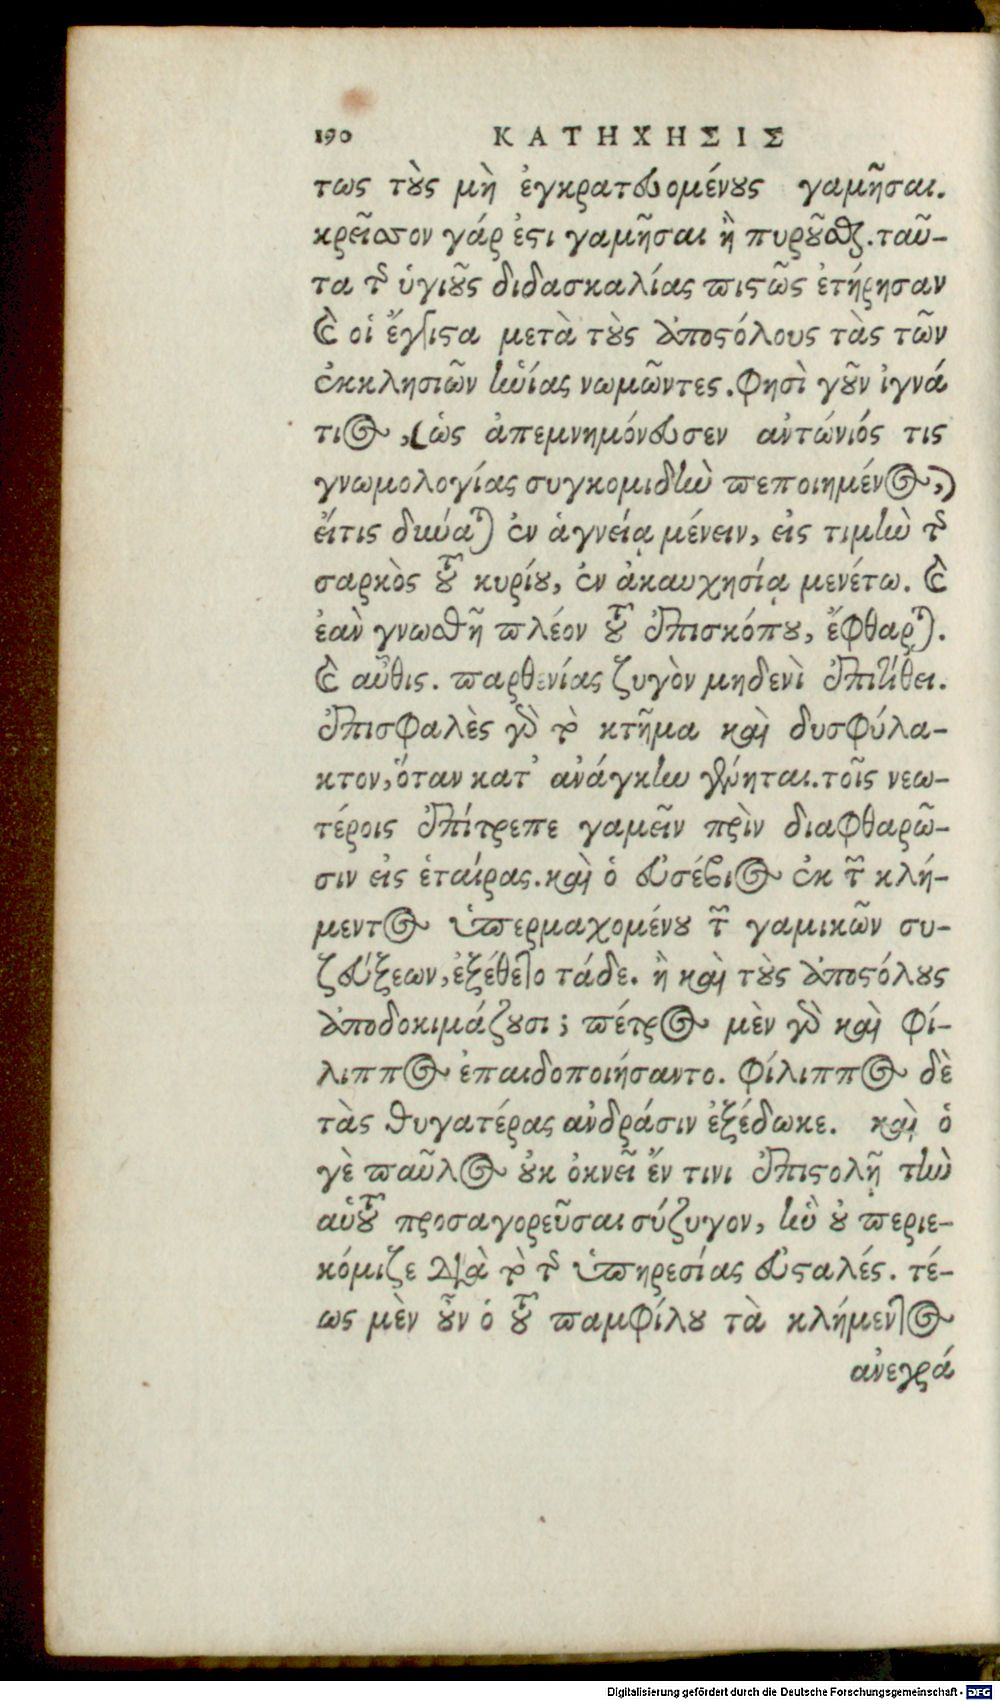 190 ΚΑΤΗΧΗΣΙΣ
τως τοὺς μὴ ἐγκρατευομένους γαμῆσαι.
κρεῖσσον γάρ ἐστι γαμῆσαι ἢ πυροῦσθαι. ταῦ-
τα τῆς ὑγιοῦς διδασκαλίας πιστῶς ἐτήρησαν
καὶ οἱ ἔγγιστα μετὰ τοὺς ἀποστόλους τὰς τῶν
ἐκκλησιῶν ἡνίας νωμῶντες. φησὶ γοῦν ἰγνά
τιος, (ὡς ἀπεμνημόνευσεν ἀντώνιός τις
γνωμολογίας συγκομιδὴν πεποιημένος,)
εἴτις δύναται ἐν ἁγνείᾳ μένειν, εἰς τιμὴν τῆς
σαρκὸς τοῦ κυρίου, ἐν ἀκαυχησίᾳ μενέτω. καὶ
ἐὰν γνωσθῇ πλέον τοῦ ἐπισκόπου, ἔφθαρται.
καὶ αὖθις. παρθενίας ζυγὸν μηδενὶ ἐπιτίθει.
ἐπισφαλὲς γὰρ τὸ κτῆμα καὶ δυσφύλα-
κτον, ὅταν κατ' ἀνάγκην γένηται. τοῖς νεω-
τέροις ἐπίτρεπε γαμεῖν πρὶν διαφθαρῶ-
σιν εἰς ἑταίρας. καὶ ὁ εὐσέβιος ἐκ τῶν κλή-
μεντος ὑπερμαχομένου τῶν γαμικῶν συ-
ζεύξεων, ἐξέθετο τάδε. ἢ καὶ τοὺς ἀποστόλους
ἀποδοκιμάζουσι; πέτρος μὲν γὰρ καὶ φί-
λιππος ἐπαιδοποιήσαντο. φίλιππος δὲ
τὰς θυγατέρας ἀνδράσιν ἐξέδωκε. καὶ ὁ
γὲ παῦλος οὐκ ὀκνεῖ ἔν τινι ἐπιστολῇ τὴν
αὑτοῦ προσαγορεῦσαι σύζυγον, ἣν οὐ περιε-
κόμιζε διὰ τὸ τῆς ὑπηρεσίας εὐσταλές. τέ-
ως μὲν οὖν ὁ τοῦ παμφίλου τὰ κλήμεντος
ἀνεγρά